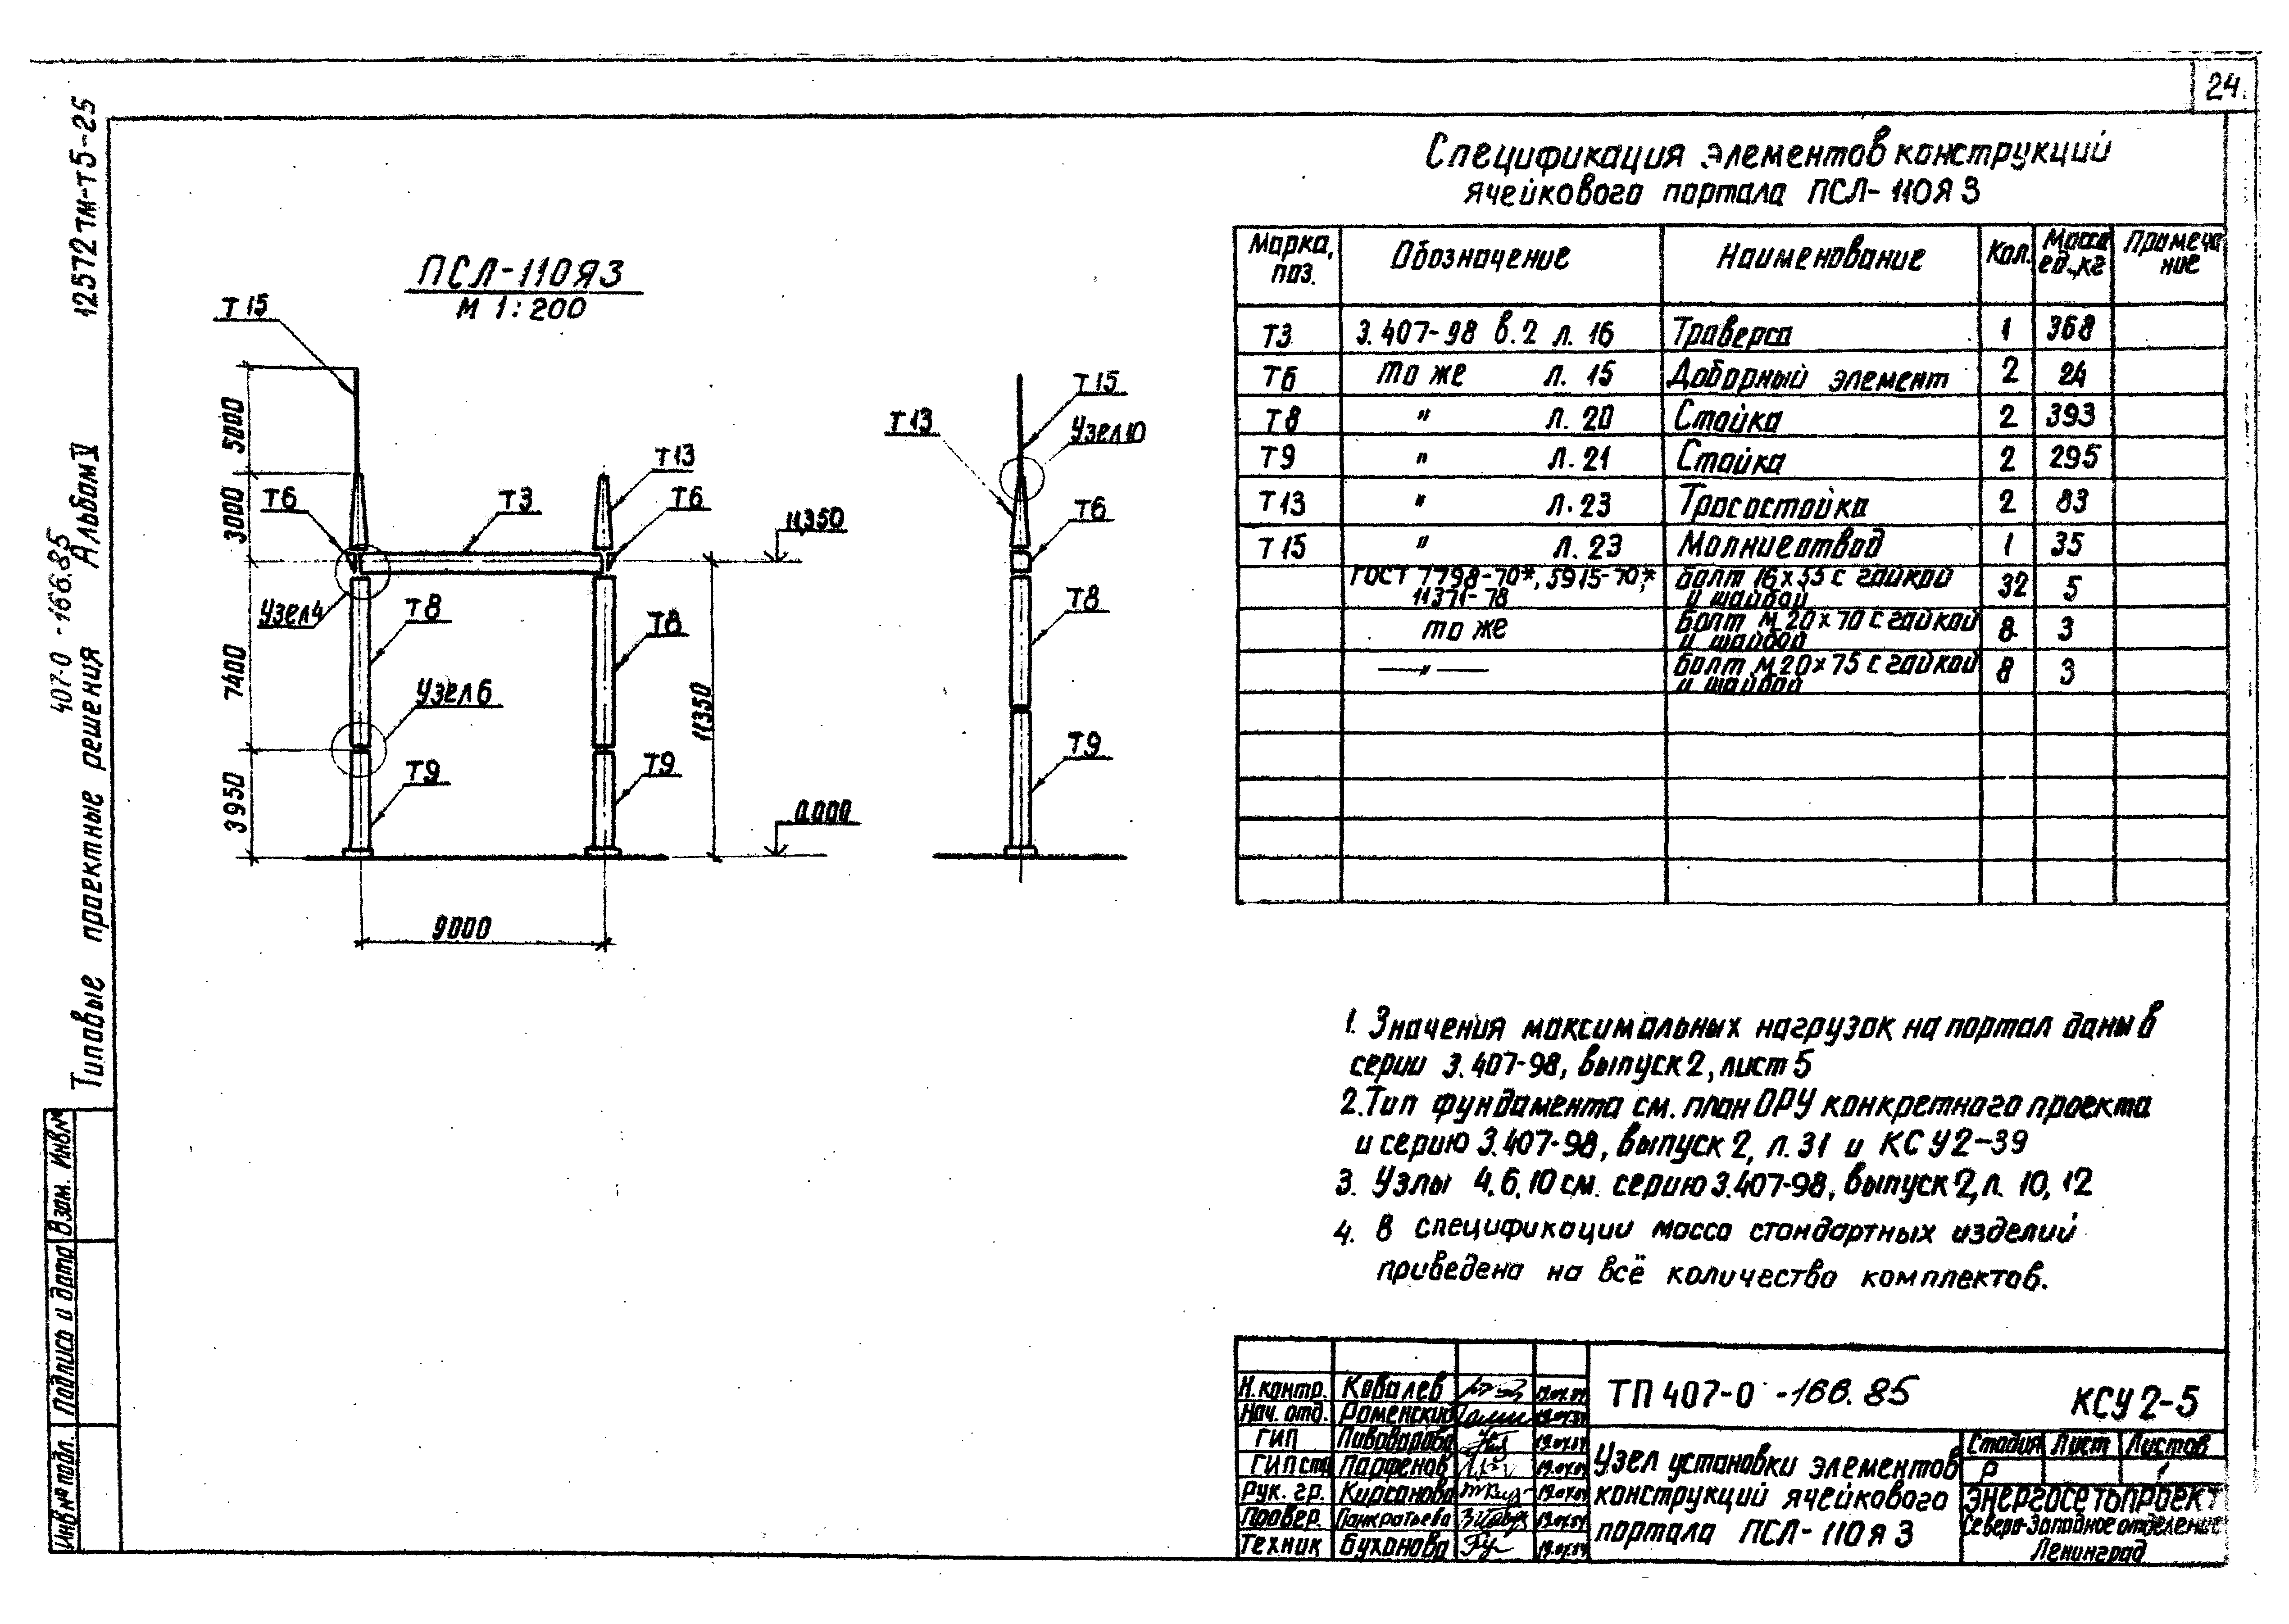 24
12572тм-т5-25
407-0-166.85
Альбом V
Типовые проектные решения
Взам. Инв.№
Подпись и дата
Инв.№ подл.
ПСЛ-110Я3
М 1:200
Т15
5000
3000
7400
3950
Т6
Т3
Т13
Т6
11350
Узел4
Т8
Т8
Узел6
11350
Т9
Т9
0.000
9000
Т15
Т13
Узел10
Т6
Т8
Т9
Спецификация элементов конструкций
ячейкового портала ПСЛ-110Я3
Марка, поз. Обозначение Наименование Кол. Масса ед.,кг Примечание
Т3 3.407-98 в.2 л. 16 Траверса 1 368
Т6 то же л. 15 Доборный элемент 2 24
Т8 " л. 20 Стойка 2 393
Т9 " л. 21 Стойка 2 295
Т13 " л. 23 Тросостойка 2 83
Т15 " л. 23 Молниеотвод 1 35
ГОСТ 7798-70*, 5915-70*, 11371-78 Болт 16х55 с гайкой и шайбой 32 5
то же Болт М20х70 с гайкой и шайбой 8 3
—"— Болт М20х75 с гайкой и шайбой 8 3
1. Значения максимальных нагрузок на портал даны в
серии 3.407-98, выпуск 2, лист 5
2. Тип фундамента см. план ОРУ конкретного проекта
и серию 3.407-98, выпуск 2, л. 31 и КСУ2-39
3. Узлы 4, 6, 10 см. серию 3.407-98, выпуск 2, л. 10, 12
4. В спецификации масса стандартных изделий
приведена на всё количество комплектов.
Н.контр. Ковалев
Нач. отд. Роменский
ГИП Пивоварова
ГИП стр Парфенов
Рук. гр. Кирсанова
Провер. Панкратьева
Техник Буханова
ТП 407-0-166.85 КСУ2-5
Узел установки элементов
конструкций ячейкового
портала ПСЛ-110Я3
Стадия Лист Листов
Р 1
ЭНЕРГОСЕТЬПРОЕКТ
Северо-Западное отделение
Ленинград